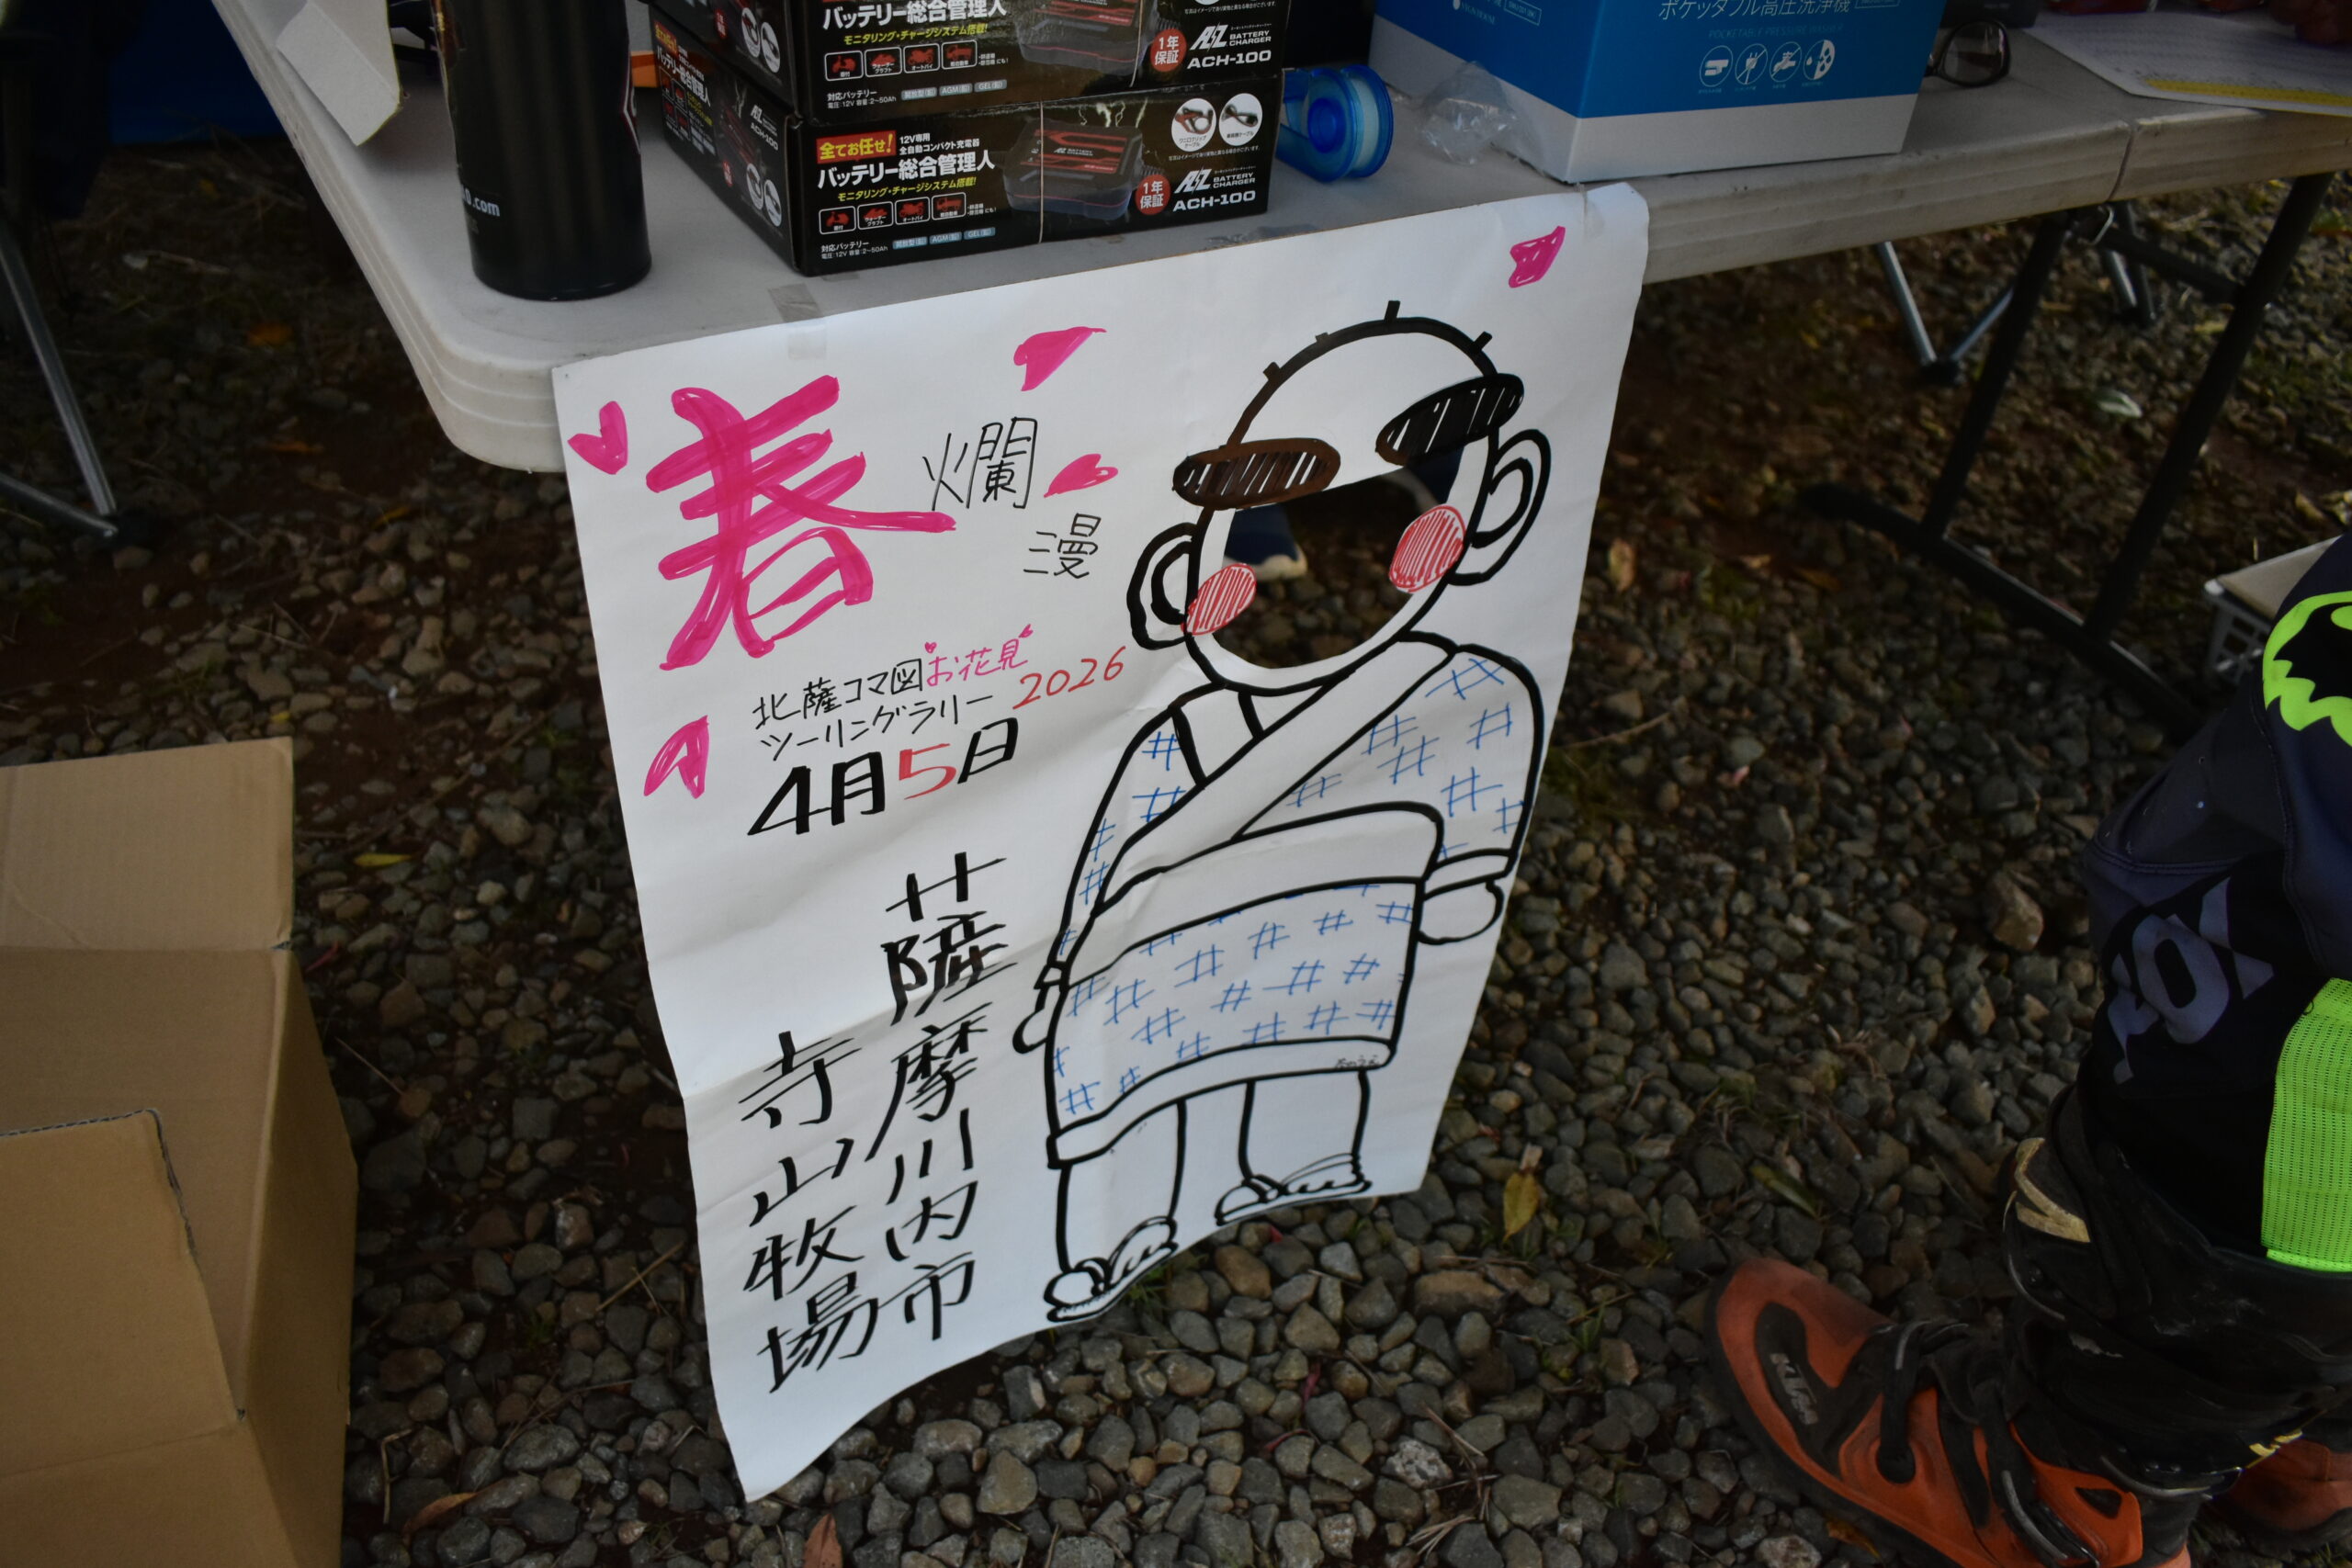 バッテリー総合管理人
モニタリング・チャージシステム搭載!
1年保証
BATTERY CHARGER
ACH-100
対応バッテリー
電圧:12V 容量:2~50Ah
開放型(鉛) AGM(鉛) GEL(鉛)
ポケッタブル高圧洗浄機
POCKETABLE PRESSURE WASHER
全てお任せ!
12V専用
全自動コンパクト充電器
バッテリー総合管理人
モニタリング・チャージシステム搭載!
1年保証
BATTERY CHARGER
ACH-100
対応バッテリー
電圧:12V 容量:2~50Ah
開放型(鉛) AGM(鉛) GEL(鉛)
.com
春爛漫
北薩コマ図お花見
ツーリングラリー 2026
4月5日
薩摩川内市
寺山牧場
FOX
KTM